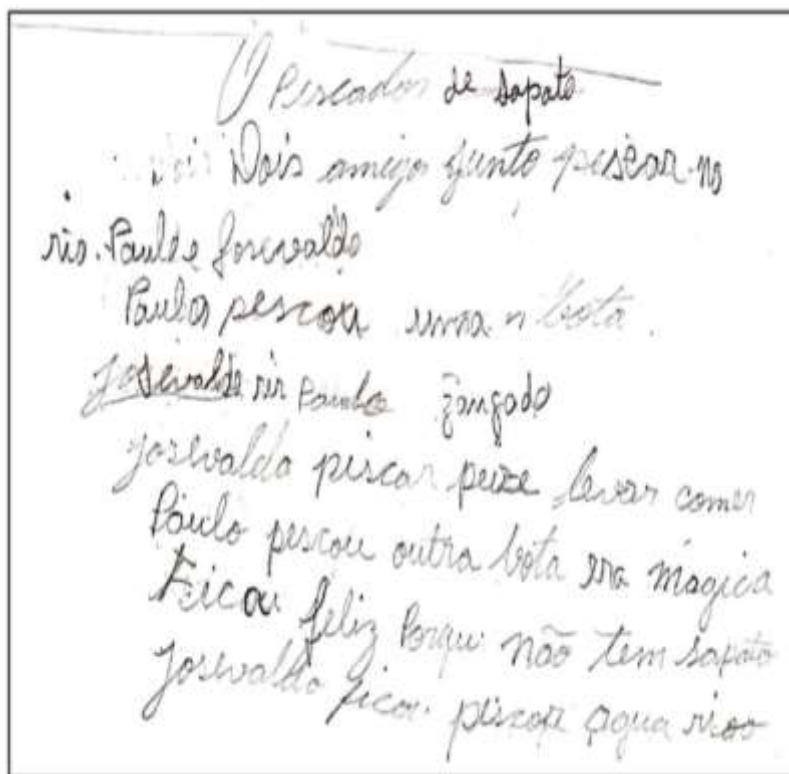 O Pescador de sapato
Dois amigo junto pescar no
rio. Paulo e Josevaldo
Paulo pescou uma bota.
Josevalde rir Paulo zangado
Josevaldo piscar peixe levar comer
Paulo pescou outra bota era mágica
Ficou feliz Porque não tem sapato
Josevaldo ficou piscar agua